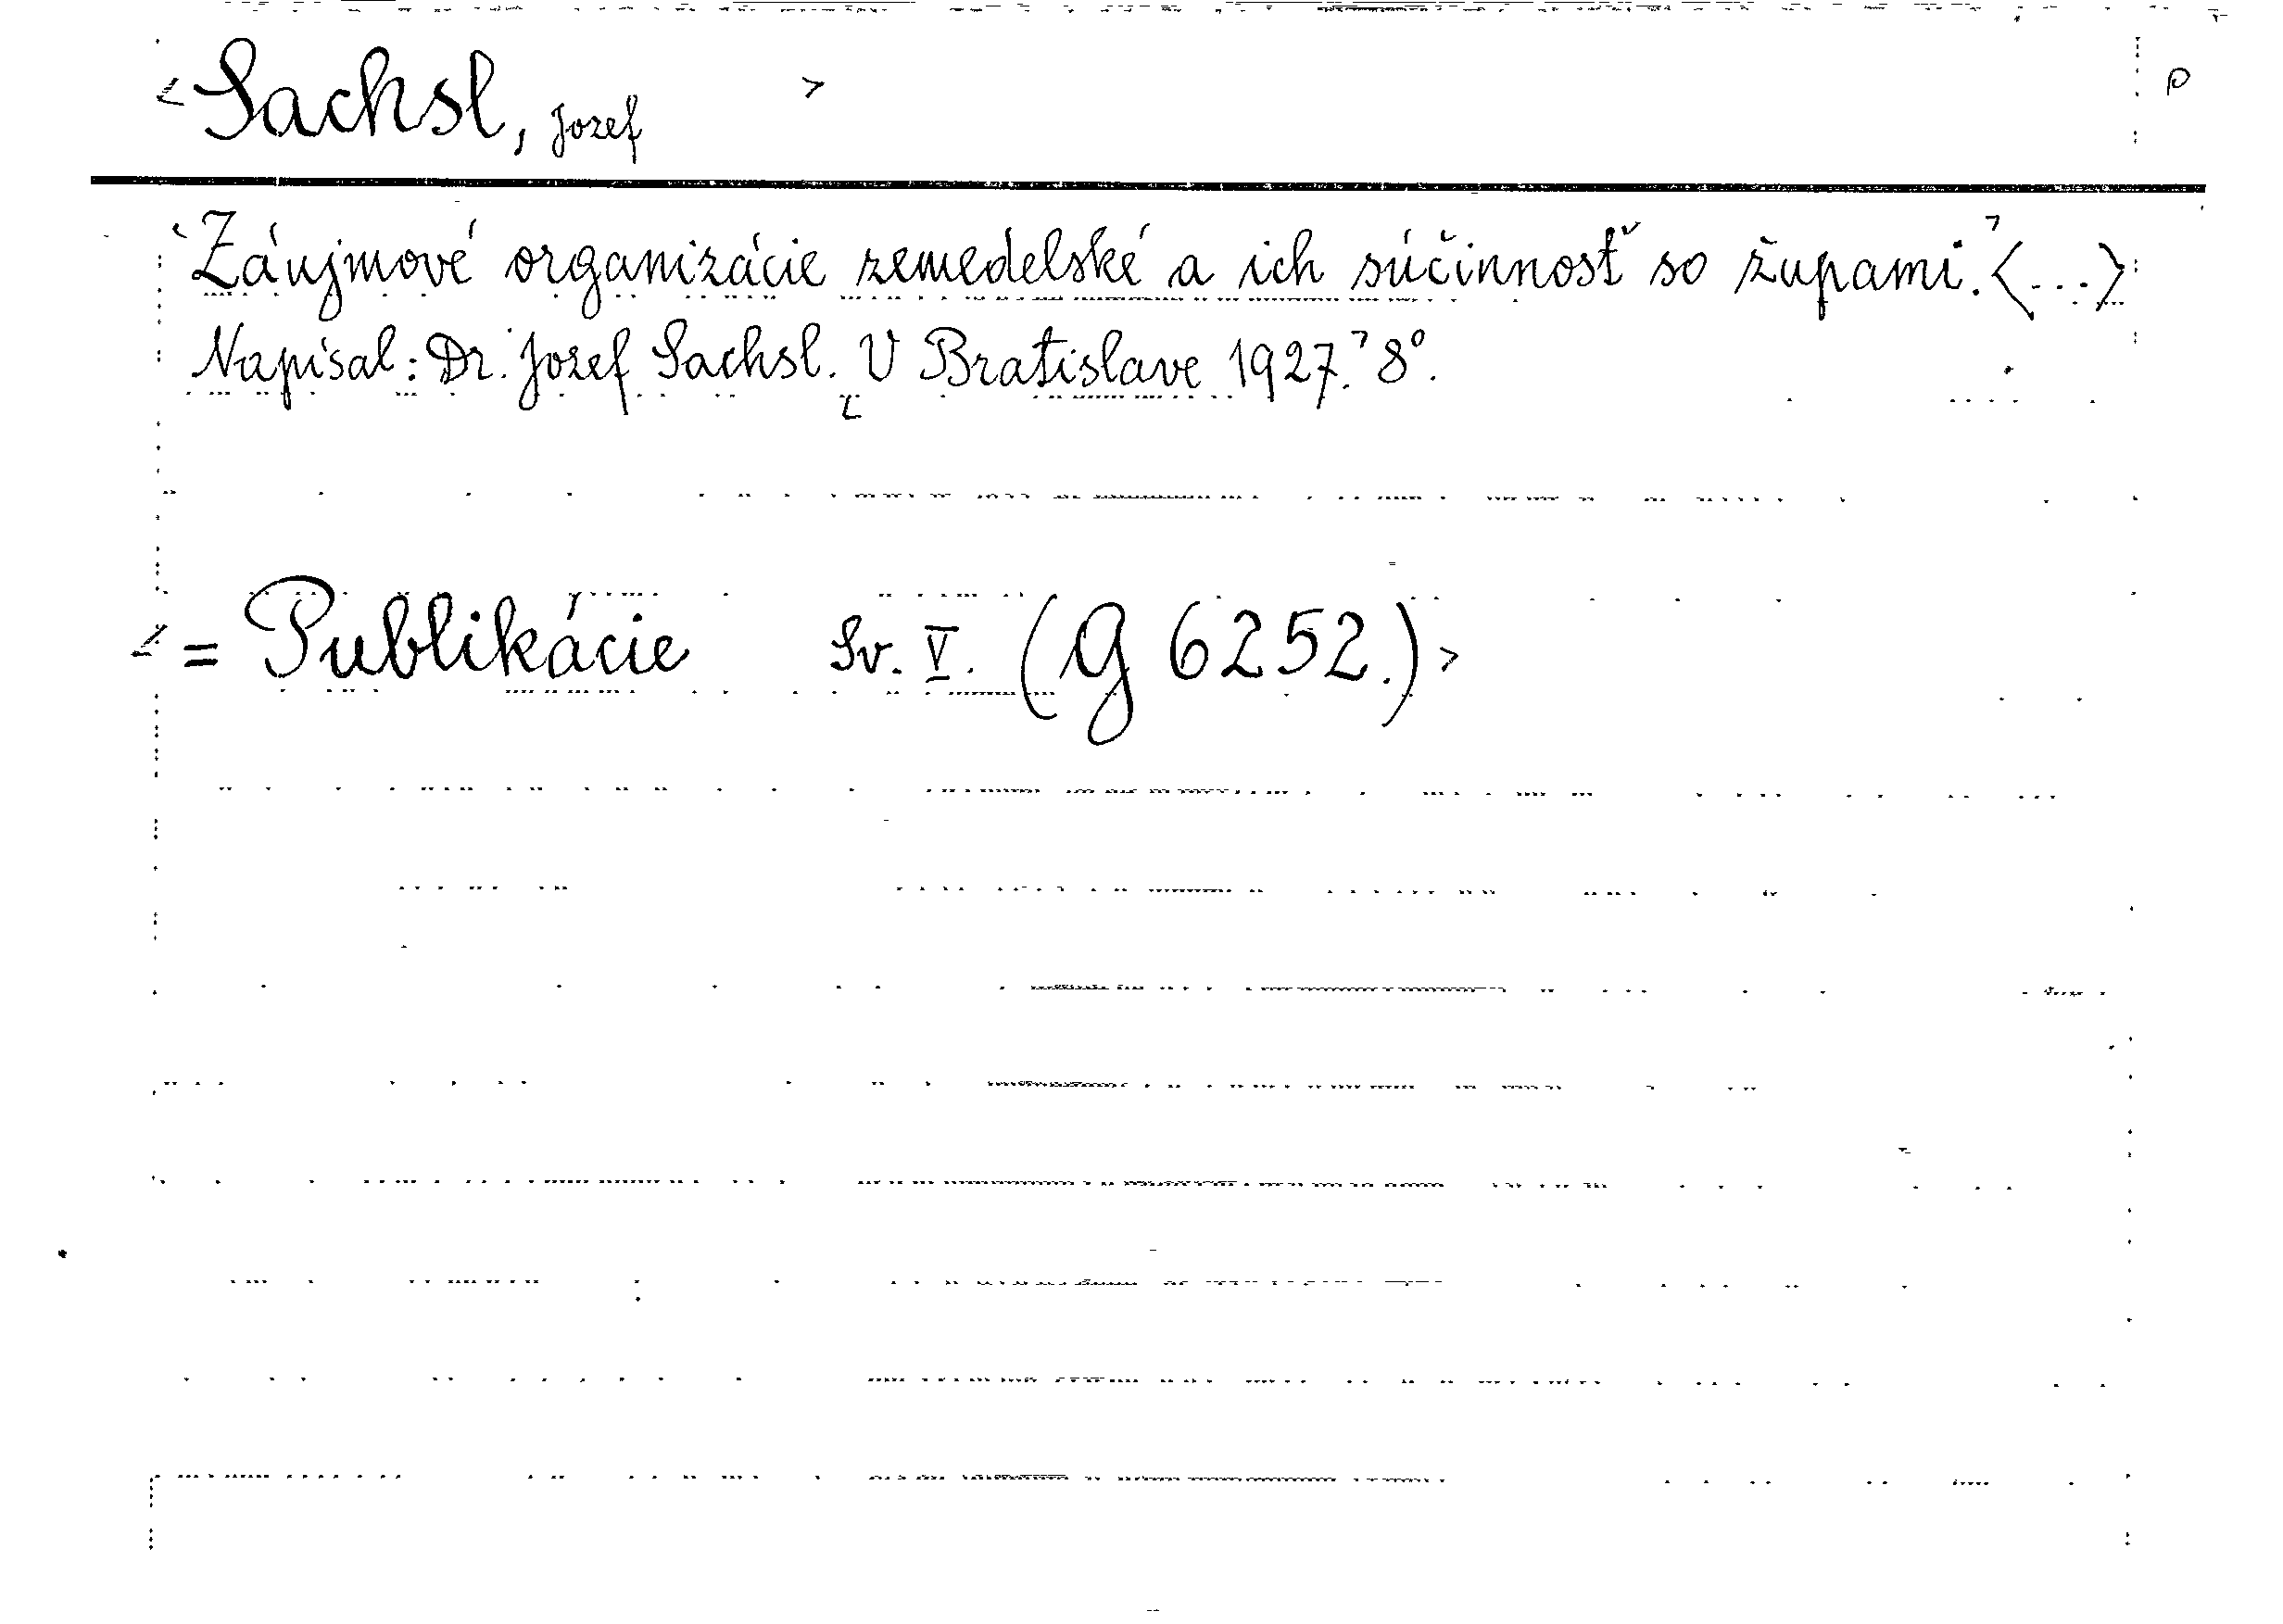 <Sachsl, Jozef > p
"Záujmové organizácie zemedelské a ich súčinnosť so župami." <...>
Napísal: Dr. Jozef Sachsl. V Bratislave 1927." 8°.
<= Publikácie Sv. V. (G 6252.)>